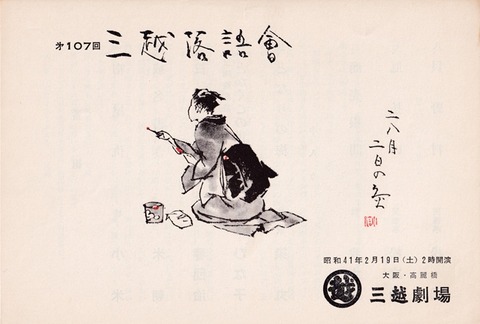 才107回 三越落語會
二八月
二日の灸
昭和41年2月19日(土)2時開演
大阪・高麗橋
越 三越劇場